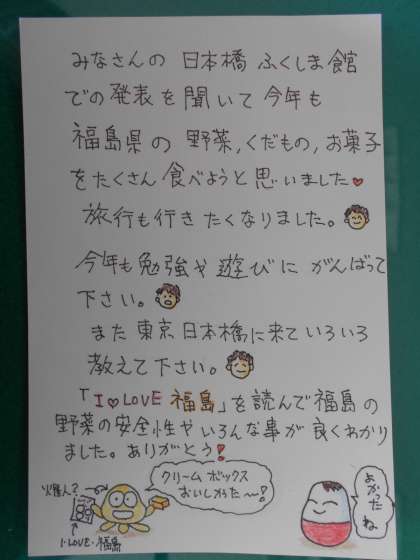 みなさんの 日本橋 ふくしま館
での発表を聞いて今年も
福島県の野菜,くだもの,お菓子
をたくさん食べようと思いました♥
旅行も行きたくなりました。
今年も勉強や遊びに がんばって
下さい。
また東京日本橋に来ていろいろ
教えて下さい。
「I♥LOVE 福島」を読んで福島の
野菜の安全性やいろんな事が良くわかり
ました。ありがとう!
クリームボックス
おいしかった〜!
よかったね
I・LOVE・福島